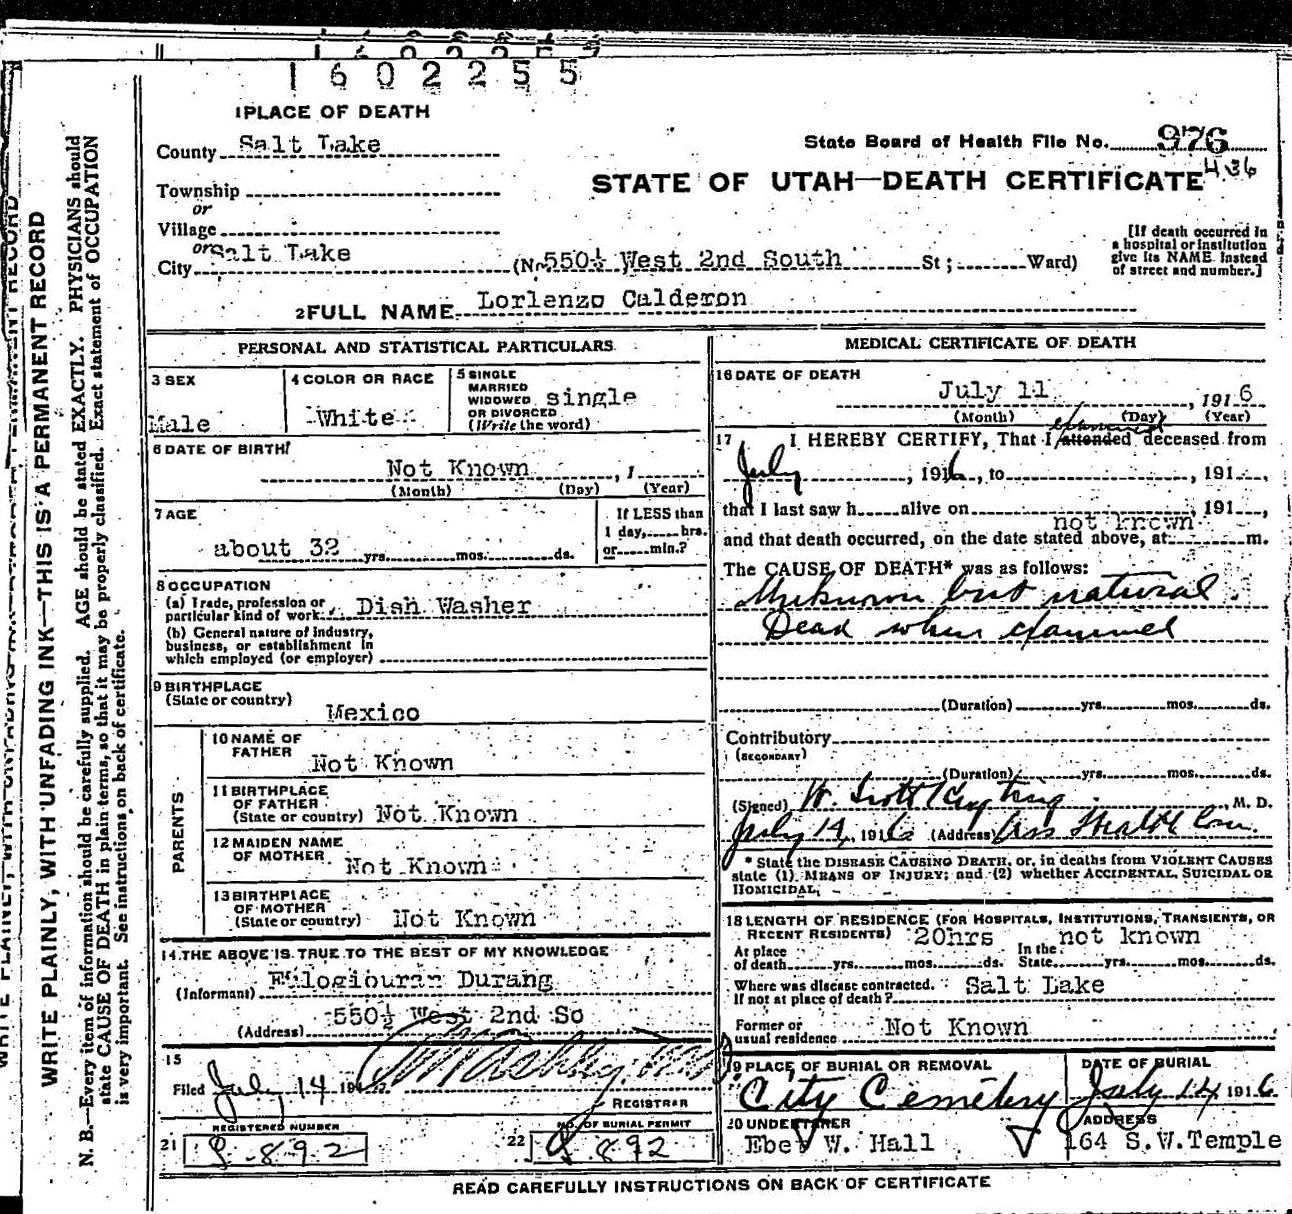 1602255
1 PLACE OF DEATH
County Salt Lake
State Board of Health File No. 976
436
Township
or
Village
or
City Salt Lake
STATE OF UTAH—DEATH CERTIFICATE
(No. 550½ West 2nd South St; Ward)
[If death occurred in
a hospital or institution
give its NAME instead
of street and number.]
2 FULL NAME Lorlenzo Calderon
PERSONAL AND STATISTICAL PARTICULARS
3 SEX
Male
4 COLOR OR RACE
White
5 SINGLE
MARRIED
WIDOWED
OR DIVORCED
(Write the word)
single
6 DATE OF BIRTH
Not Known , 1
(Month) (Day) (Year)
7 AGE
about 32 yrs. mos. ds.
If LESS than
1 day, hrs.
or min.?
8 OCCUPATION
(a) Trade, profession or
particular kind of work Dish Washer
(b) General nature of industry,
business, or establishment in
which employed (or employer)
9 BIRTHPLACE
(State or country)
Mexico
PARENTS
10 NAME OF
FATHER Not Known
11 BIRTHPLACE
OF FATHER
(State or country) Not Known
12 MAIDEN NAME
OF MOTHER Not Known
13 BIRTHPLACE
OF MOTHER
(State or country) Not Known
14 THE ABOVE IS TRUE TO THE BEST OF MY KNOWLEDGE
(Informant) Durang
(Address) 550½ West 2nd So
15
Filed July 14 191
REGISTRAR
REGISTERED NUMBER
21 892
NO. OF BURIAL PERMIT
22 892
MEDICAL CERTIFICATE OF DEATH
16 DATE OF DEATH
July 11 , 1916
(Month) (Day) (Year)
examined
17 I HEREBY CERTIFY, That I attended deceased from
July , 1916, to , 191 ,
that I last saw h alive on , 191 ,
not known
and that death occurred, on the date stated above, at m.
The CAUSE OF DEATH* was as follows:
Unknown but natural.
Dead when examined
(Duration) yrs. mos. ds.
Contributory
(SECONDARY)
(Duration) yrs. mos. ds.
(Signed) W. Scott Keyting , M. D.
July 14, 1916 (Address) Ass Health Com.
* State the DISEASE CAUSING DEATH, or, in deaths from VIOLENT CAUSES
state (1) MEANS OF INJURY; and (2) whether ACCIDENTAL, SUICIDAL OR
HOMICIDAL.
18 LENGTH OF RESIDENCE (FOR HOSPITALS, INSTITUTIONS, TRANSIENTS, OR
RECENT RESIDENTS) 20hrs not known
At place In the
of death yrs. mos. ds. State yrs. mos. ds.
Where was disease contracted. Salt Lake
If not at place of death?
Former or
usual residence Not Known
19 PLACE OF BURIAL OR REMOVAL
City Cemetery
DATE OF BURIAL
July 14 1916
20 UNDERTAKER
Eber W. Hall
ADDRESS
164 S.W.Temple
READ CAREFULLY INSTRUCTIONS ON BACK OF CERTIFICATE
WRITE PLAINLY, WITH UNFADING INK—THIS IS A PERMANENT RECORD
N. B.—Every item of information should be carefully supplied. AGE should be stated EXACTLY. PHYSICIANS should
state CAUSE OF DEATH in plain terms, so that it may be properly classified. Exact statement of OCCUPATION
is very important. See instructions on back of certificate.